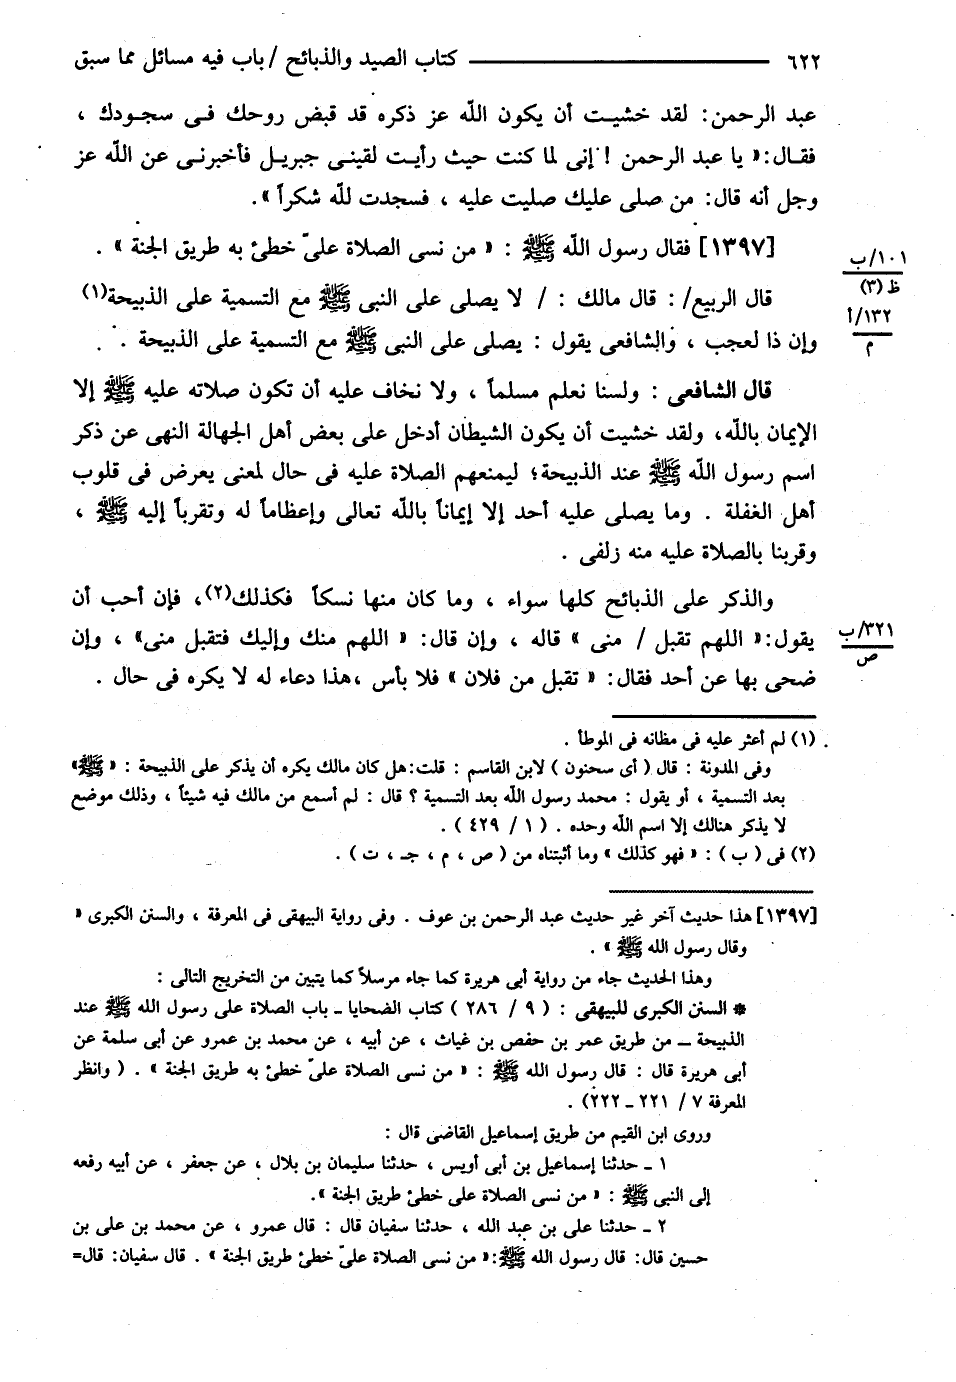 ٦٢٢ ــــــــــــــــ كتاب الصيد والذبائح / باب فيه مسائل مما سبق
عبد الرحمن: لقد خشيت أن يكون الله عز ذكره قد قبض روحك فى سجودك ،
فقال:« يا عبد الرحمن ! إنى لما كنت حيث رأيت لقينى جبريل فأخبرنى عن الله عز
وجل أنه قال: من صلى عليك صليت عليه ، فسجدت لله شكراً ».
[١٣٩٧] فقال رسول الله ﷺ : « من نسى الصلاة علىّ خطئ به طريق الجنة » .
١٠١/ب
ظ (٣)
قال الربيع/ : قال مالك : / لا يصلى على النبى ﷺ مع التسمية على الذبيحة(١)
١٣٢/أ
م
وإن ذا لعجب ، والشافعى يقول : يصلى على النبى ﷺ مع التسمية على الذبيحة .
قال الشافعى : ولسنا نعلم مسلماً ، ولا نخاف عليه أن تكون صلاته عليه ﷺ إلا
الإيمان بالله، ولقد خشيت أن يكون الشيطان أدخل على بعض أهل الجهالة النهى عن ذكر
اسم رسول الله ﷺ عند الذبيحة؛ ليمنعهم الصلاة عليه فى حال لمعنى يعرض فى قلوب
أهل الغفلة . وما يصلى عليه أحد إلا إيماناً بالله تعالى وإعظاماً له وتقرباً إليه ﷺ ،
وقربنا بالصلاة عليه منه زلفى .
والذكر على الذبائح كلها سواء ، وما كان منها نسكاً فكذلك(٢)، فإن أحب أن
يقول:« اللهم تقبل / منى » قاله ، وإن قال: « اللهم منك وإليك فتقبل منى» ، وإن
٣٢١/ب
ص
ضحى بها عن أحد فقال: « تقبل من فلان » فلا بأس ،هذا دعاء له لا يكره فى حال .
(١) لم أعثر عليه فى مظانه فى الموطأ .
وفى المدونة : قال ( أى سحنون ) لابن القاسم : قلت:هل كان مالك يكره أن يذكر على الذبيحة : « ﷺ»
بعد التسمية ، أو يقول : محمد رسول الله بعد التسمية ؟ قال : لم أسمع من مالك فيه شيئاً ، وذلك موضع
لا يذكر هنالك إلا اسم الله وحده . ( ١ / ٤٢٩ ) .
(٢) فى ( ب ) : « فهو كذلك » وما أثبتناه من ( ص ، م ، جـ ، ت ) .
[١٣٩٧] هذا حديث آخر غير حديث عبد الرحمن بن عوف . وفى رواية البيهقى فى المعرفة ، والسنن الكبرى «
وقال رسول الله ﷺ » .
وهذا الحديث جاء من رواية أبى هريرة كما جاء مرسلاً كما يتبين من التخريج التالى :
* السنن الكبرى للبيهقى : ( ٩ / ٢٨٦ ) كتاب الضحايا ـ باب الصلاة على رسول الله ﷺ عند
الذبيحة ــ من طريق عمر بن حفص بن غياث ، عن أبيه ، عن محمد بن عمرو عن أبى سلمة عن
أبى هريرة قال : قال رسول الله ﷺ : « من نسى الصلاة علىّ خطئ به طريق الجنة » . ( وانظر
المعرفة ٧ / ٢٢١ ـ ٢٢٢) .
وروى ابن القيم من طريق إسماعيل القاضى قال :
١ ـ حدثنا إسماعيل بن أبى أويس ، حدثنا سليمان بن بلال ، عن جعفر ، عن أبيه رفعه
إلى النبى ﷺ : « من نسى الصلاة على خطئ طريق الجنة ».
٢ ـ حدثنا على بن عبد الله ، حدثنا سفيان قال : قال عمرو ، عن محمد بن على بن
حسين قال: قال رسول الله ﷺ:« من نسى الصلاة علىّ خطئ طريق الجنة » . قال سفيان: قال=